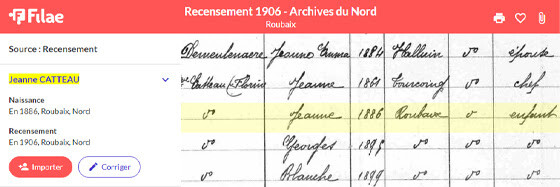 Filae
Recensement 1906 - Archives du Nord
Roubaix
Source : Recensement
Jeanne CATTEAU
Naissance
En 1886, Roubaix, Nord
Recensement
En 1906, Roubaix, Nord
Importer
Corriger
Demeulenaere Jeanne Emma 1884 Halluin do épouse
Catteau Jeanne 1861 Tourcoing do chef
do Jeanne 1886 Roubaix enfant
do Georges do do
do Blanche 1899 do do